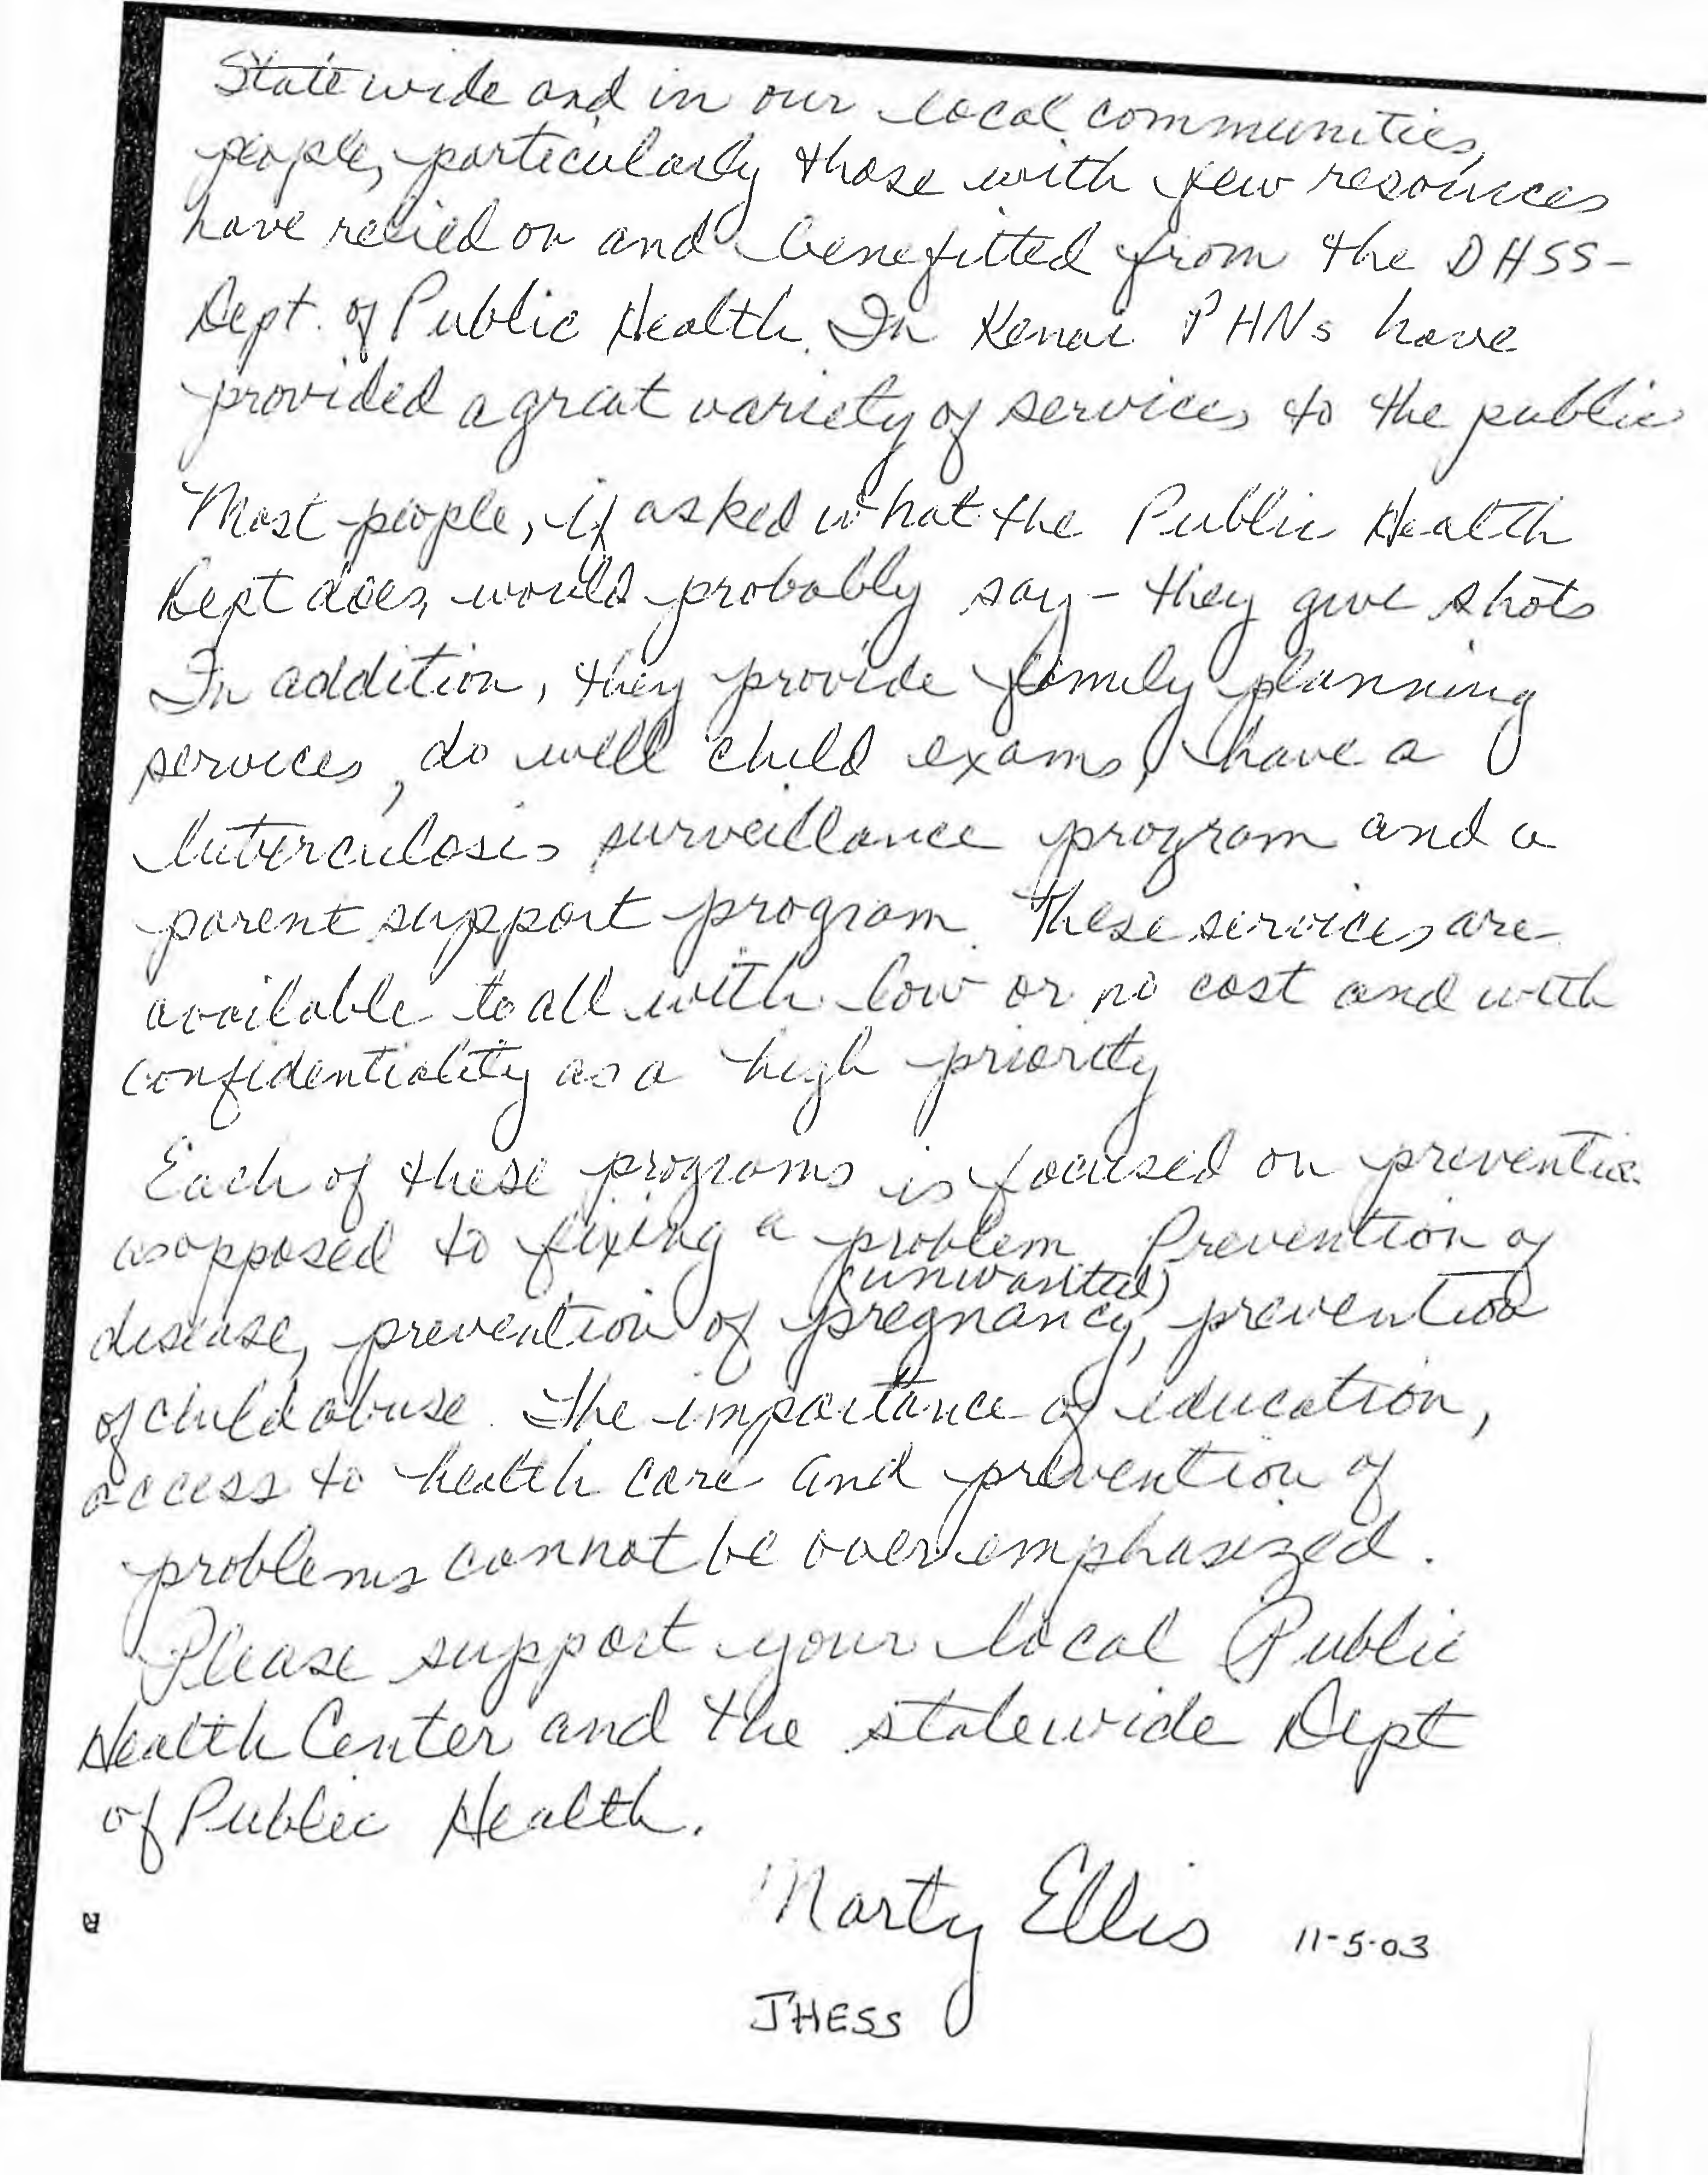 Statewide and in our local communities,
people, particularly those with few resources
have relied on and benefitted from the DHSS-
Dept. of Public Health. In Kenai PHNs have
provided a great variety of services to the public
Most people, if asked what the Public Health
Dept does, would probably say - they give shots
In addition, they provide family planning
services, do well child exams, have a
tuberculosis surveillance program and a
parent support program. These services are
available to all with low or no cost and with
confidentiality as a high priority
Each of these programs is focused on preventio
as opposed to fixing a problem. Prevention of
(unwanted)
disease, prevention of pregnancy, prevention
of child abuse. The importance of education,
access to health care and prevention of
problems cannot be overemphasized.
Please support your local Public
Health Center and the statewide Dept
of Public Health.
Marty Ellis 11-5-03
JHESS